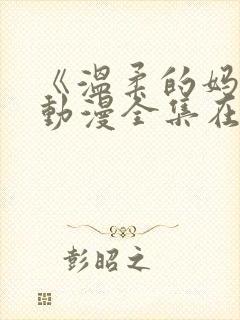 《温柔的妈
动漫全集在
彭昭之